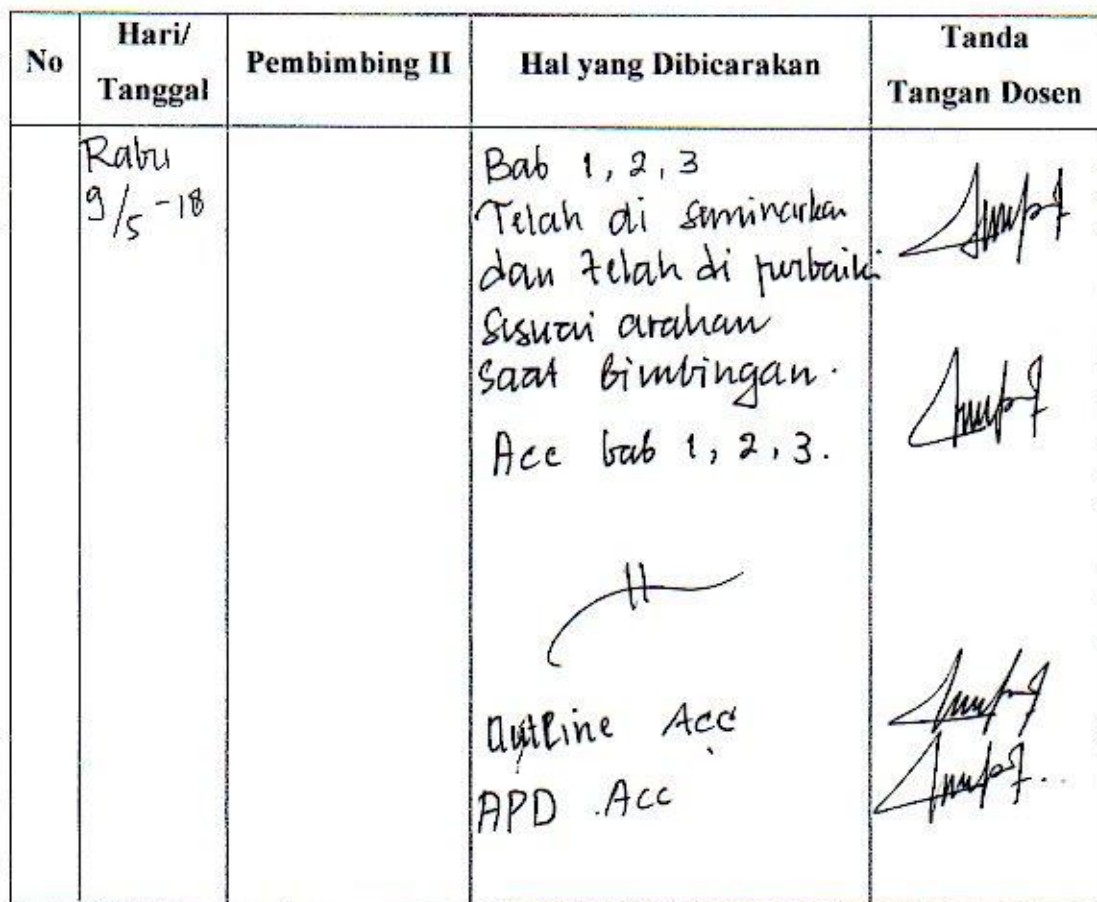 No
Hari/
Tanggal
Pembimbing II
Hal yang Dibicarakan
Tanda
Tangan Dosen
Rabu
9/5-18
Bab 1, 2, 3
Telah di seminarkan
dan telah di perbaiki
sesuai arahan
saat Bimbingan.
Acc bab 1, 2, 3.
Outline Acc
APD .Acc